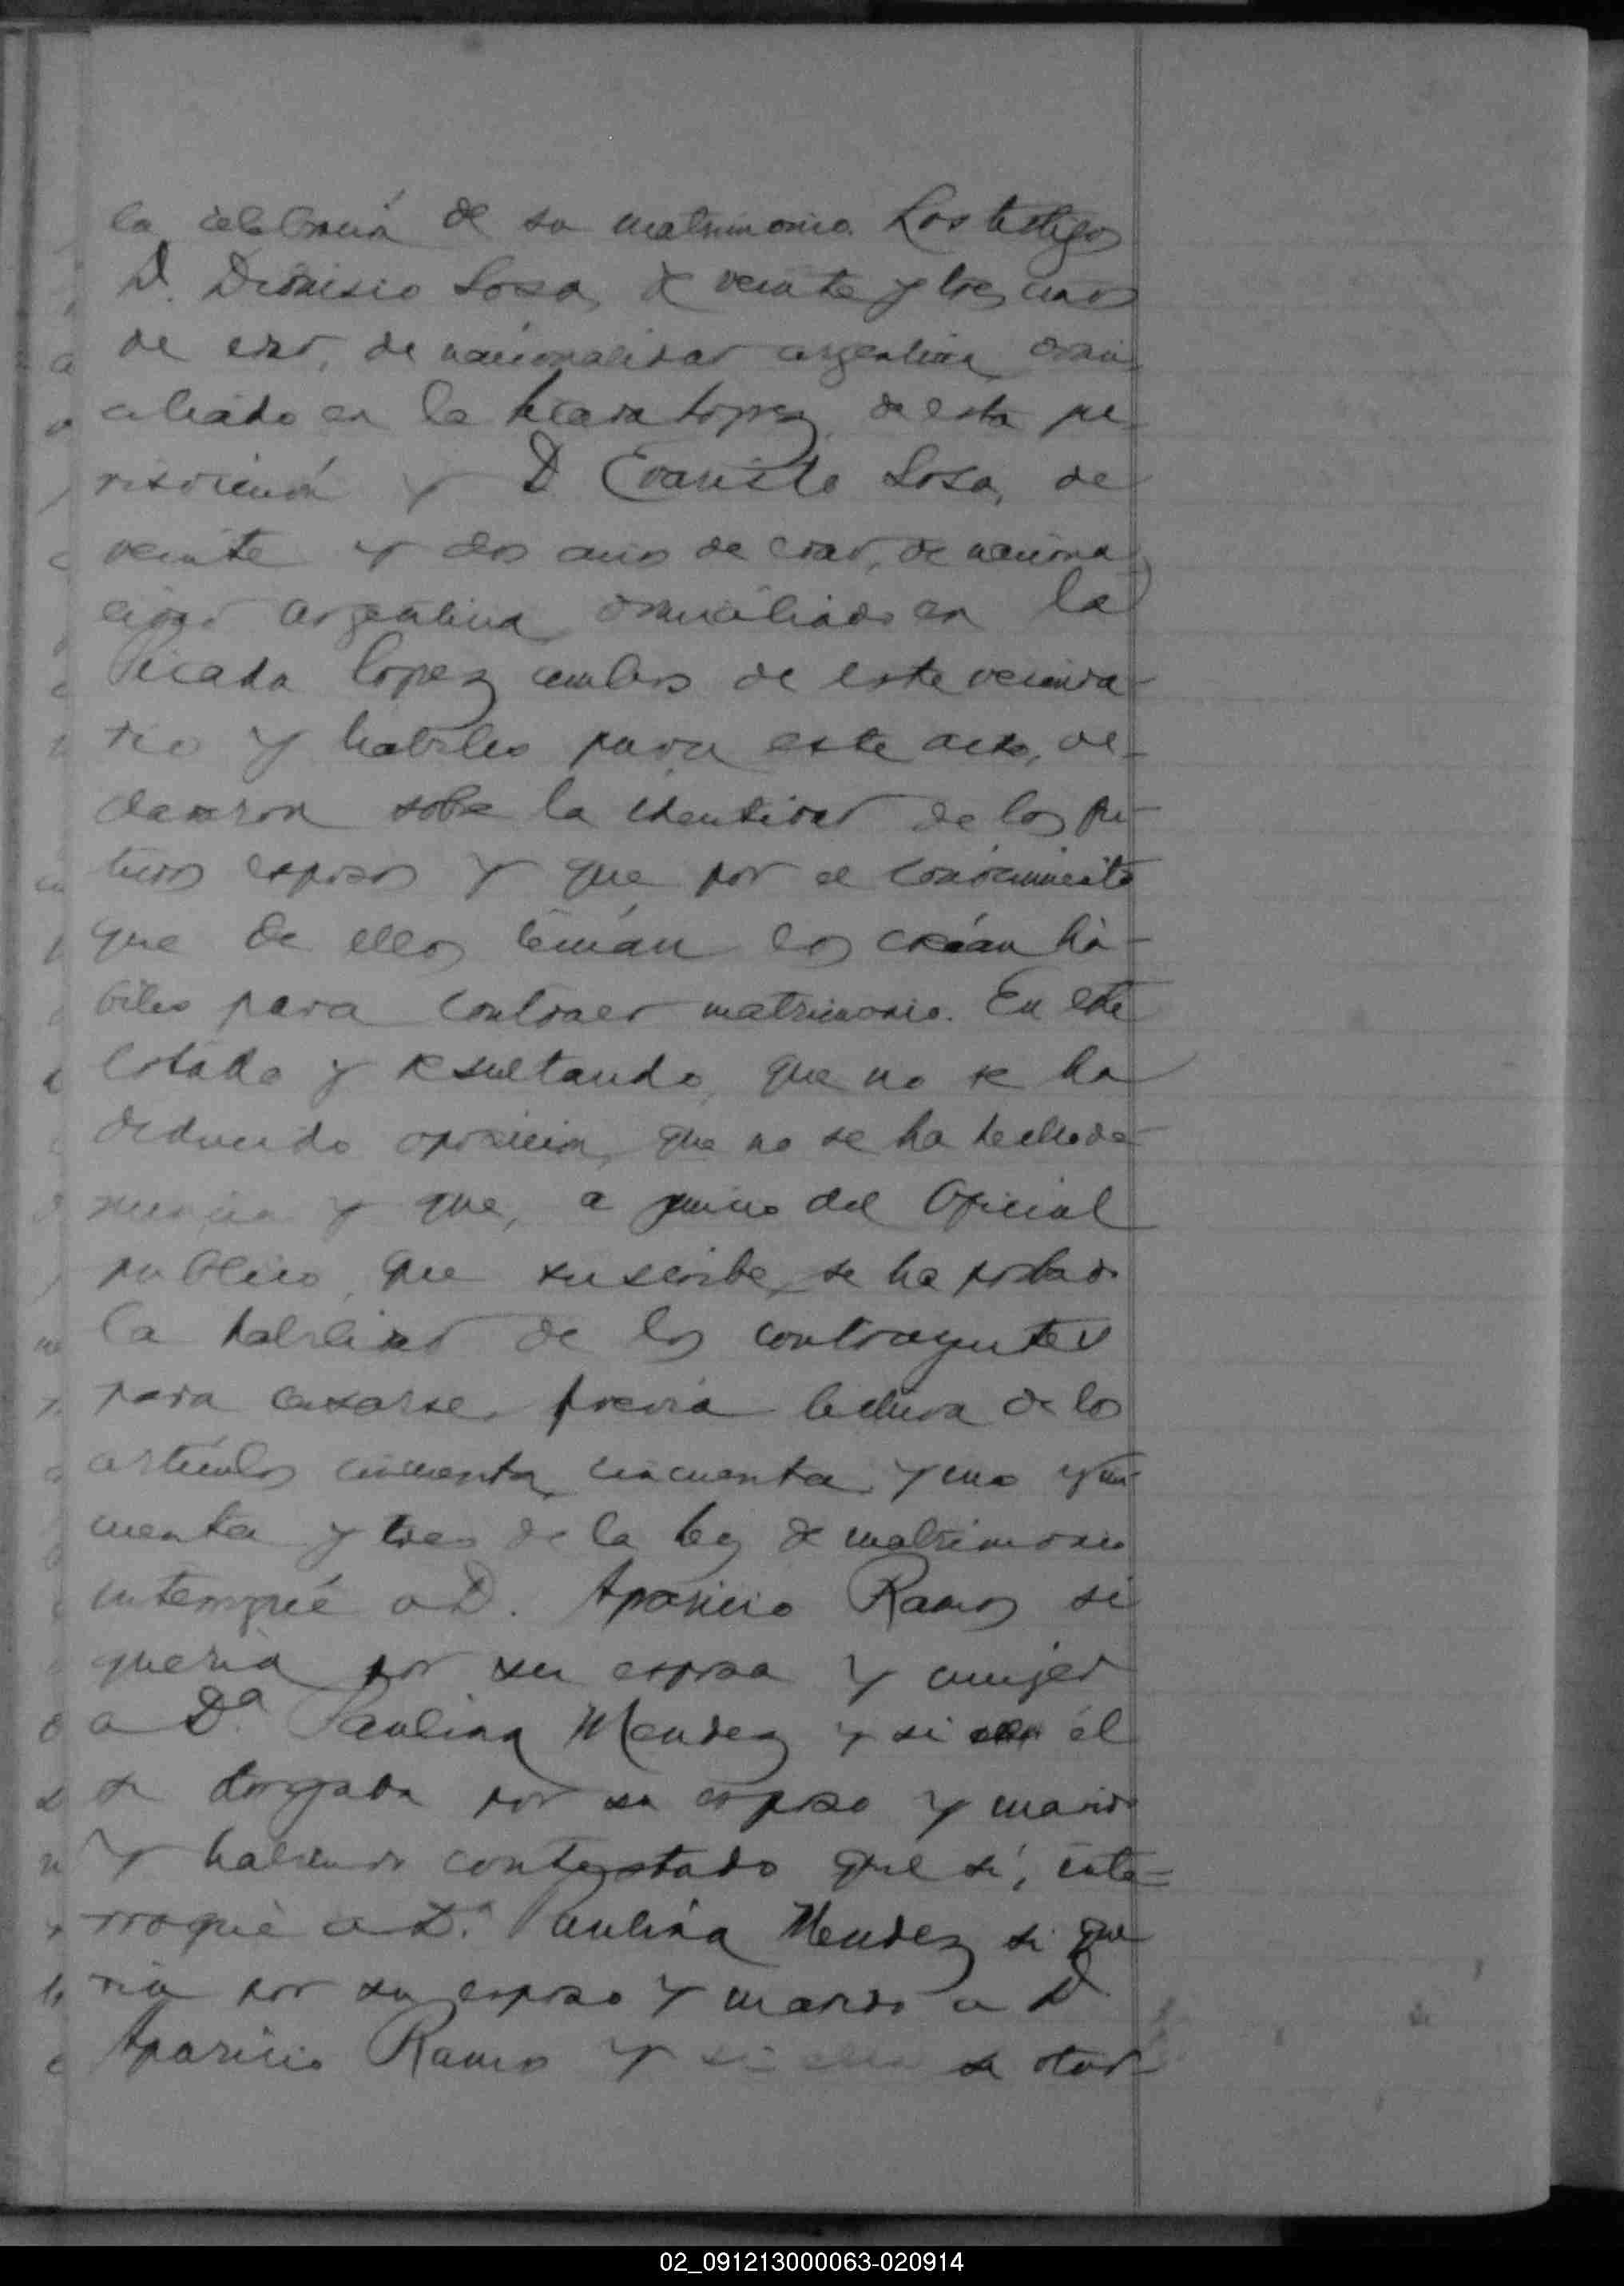 la celebración de su matrimonio. Los testigos
D. Dionisio Sosa, de veinte y tres años
de edad, de nacionalidad argentina, domi-
ciliado en la Picada Lopez, de esta ju-
risdicción y D Evaristo Sosa, de
veinte y dos años de edad, de naciona-
lidad argentina domiciliado en la
Picada Lopez ambos de este vecinda-
rio y habiles para este acto, de-
clararon sobre la identidad de los fu-
turos esposos y que por el conocimiento
que de ellos tenían los creían há-
biles para contraer matrimonio. En este
estado y resultando, que no se ha
deducido oposicion, que no se ha hecho de-
nuncia y que, a juicio del Oficial
publico, que suscribe, se ha probado
la habilidad de los contrayentes
para casarse, previa lectura de los
artículos cincuenta, cincuenta y uno y cin-
cuenta y tres de la ley de matrimonio
interrogué a D. Aparicio Ramos si
quería por su esposa y mujer
a Da. Paulina Mendez y si él
se otorgaba por su esposo y marido
y habiendo contestado que sí, inte-
rrogué a Da. Paulina Mendez si que
ria por su esposo y marido a D
Aparicio Ramos y si ella se otor-
02_091213000063-020914